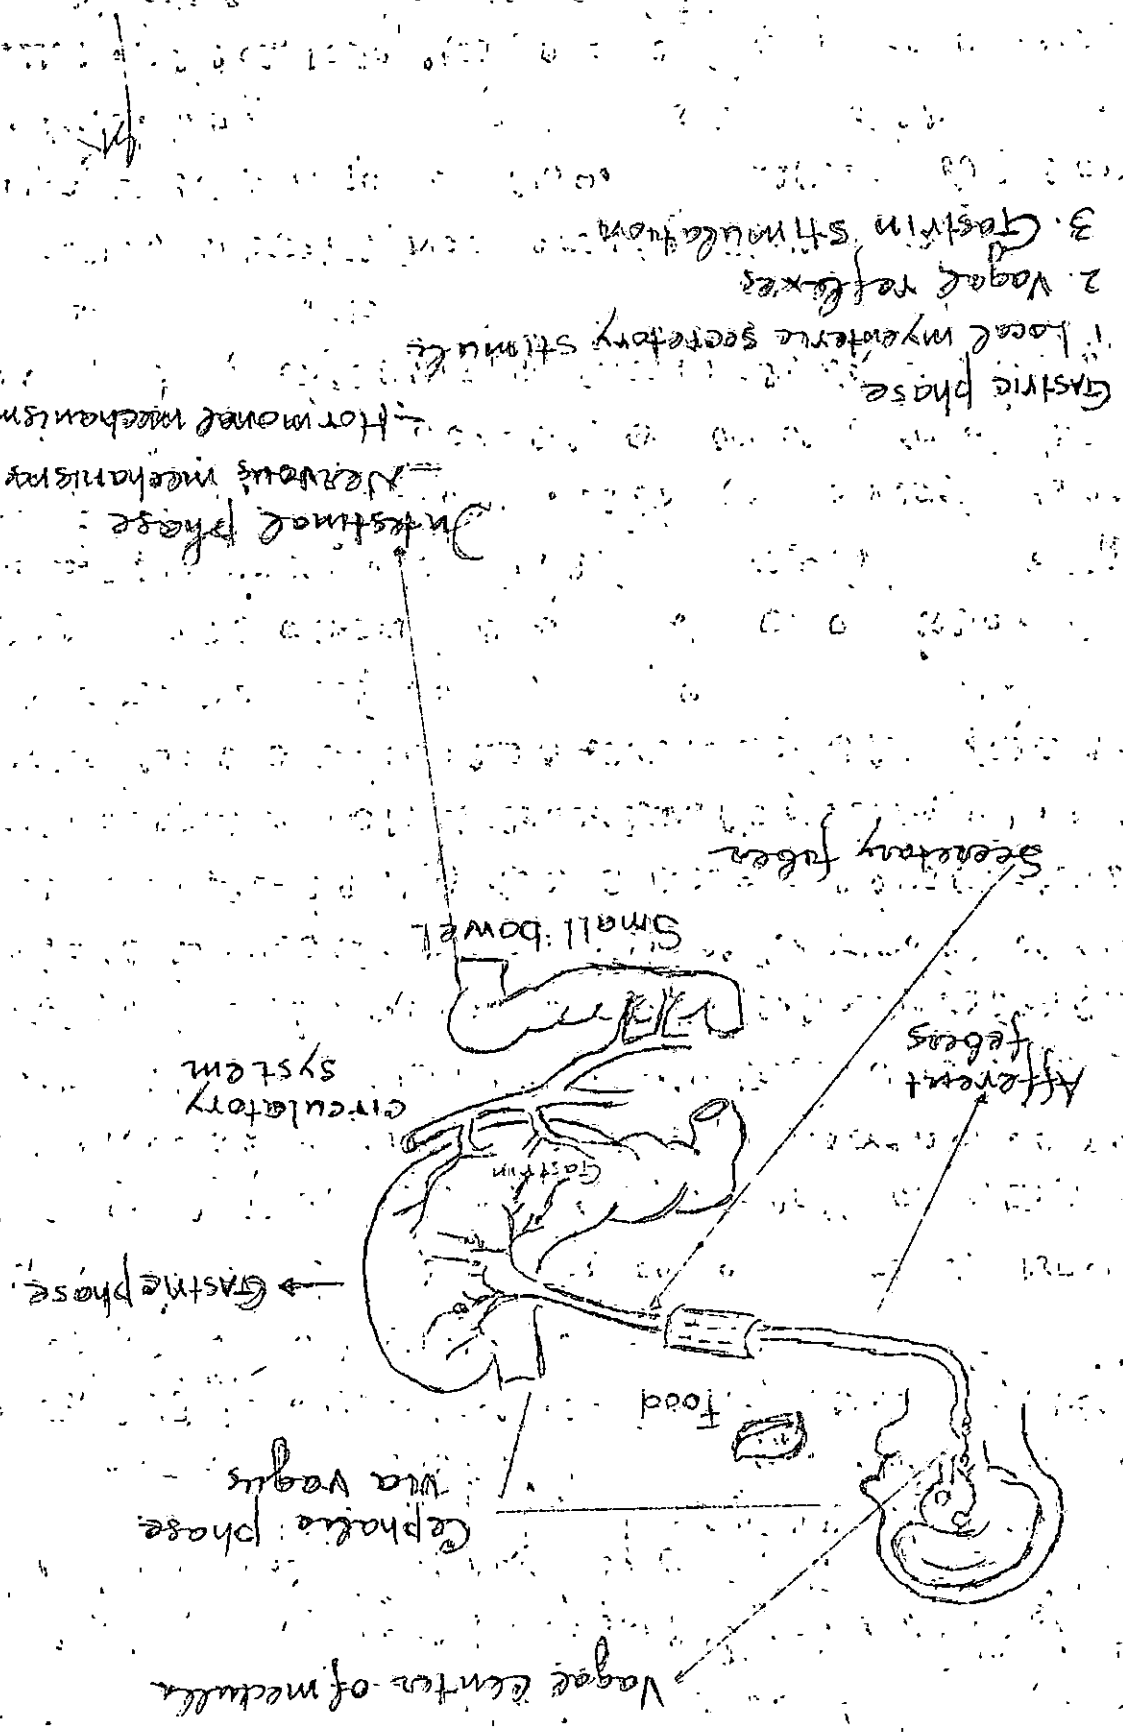 Vagal center of medulla
Cephalic phase
via vagus
Food
Gastric phase
Gastrin
circulatory
system
Afferent
febers
Small bowel
Secretary fiber
Intestinal phase
- Nervous mechanism
- Hormonal mechanism
Gastric phase
1. Local myenteric secretory stimuli
2. Vagal reflexes
3. Gastrin stimulation